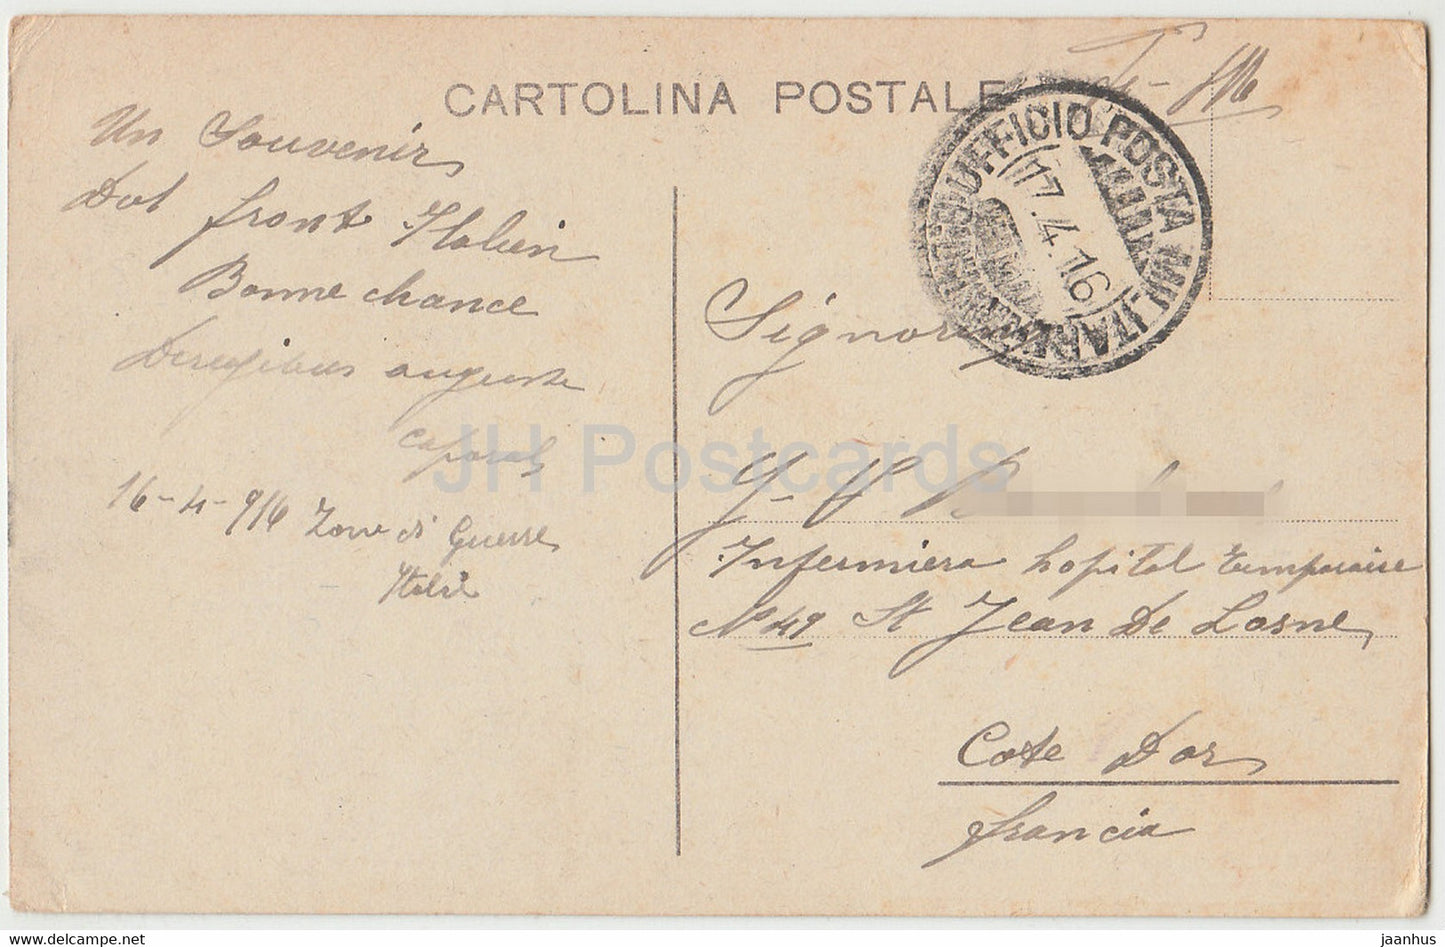 CARTOLINA POSTALE
UFFICIO POSTA MILITARE
17.4.16
Un Souvenir
Dul front Italien
Bonne chance
auguste
caporal
16-4-916 Zone di Guerre
Italie
Infermiera hopital temporaire
No 49 St Jean De Losne
Cote Dor
francia
JH Postcards
www.delcampe.net
jaanhus